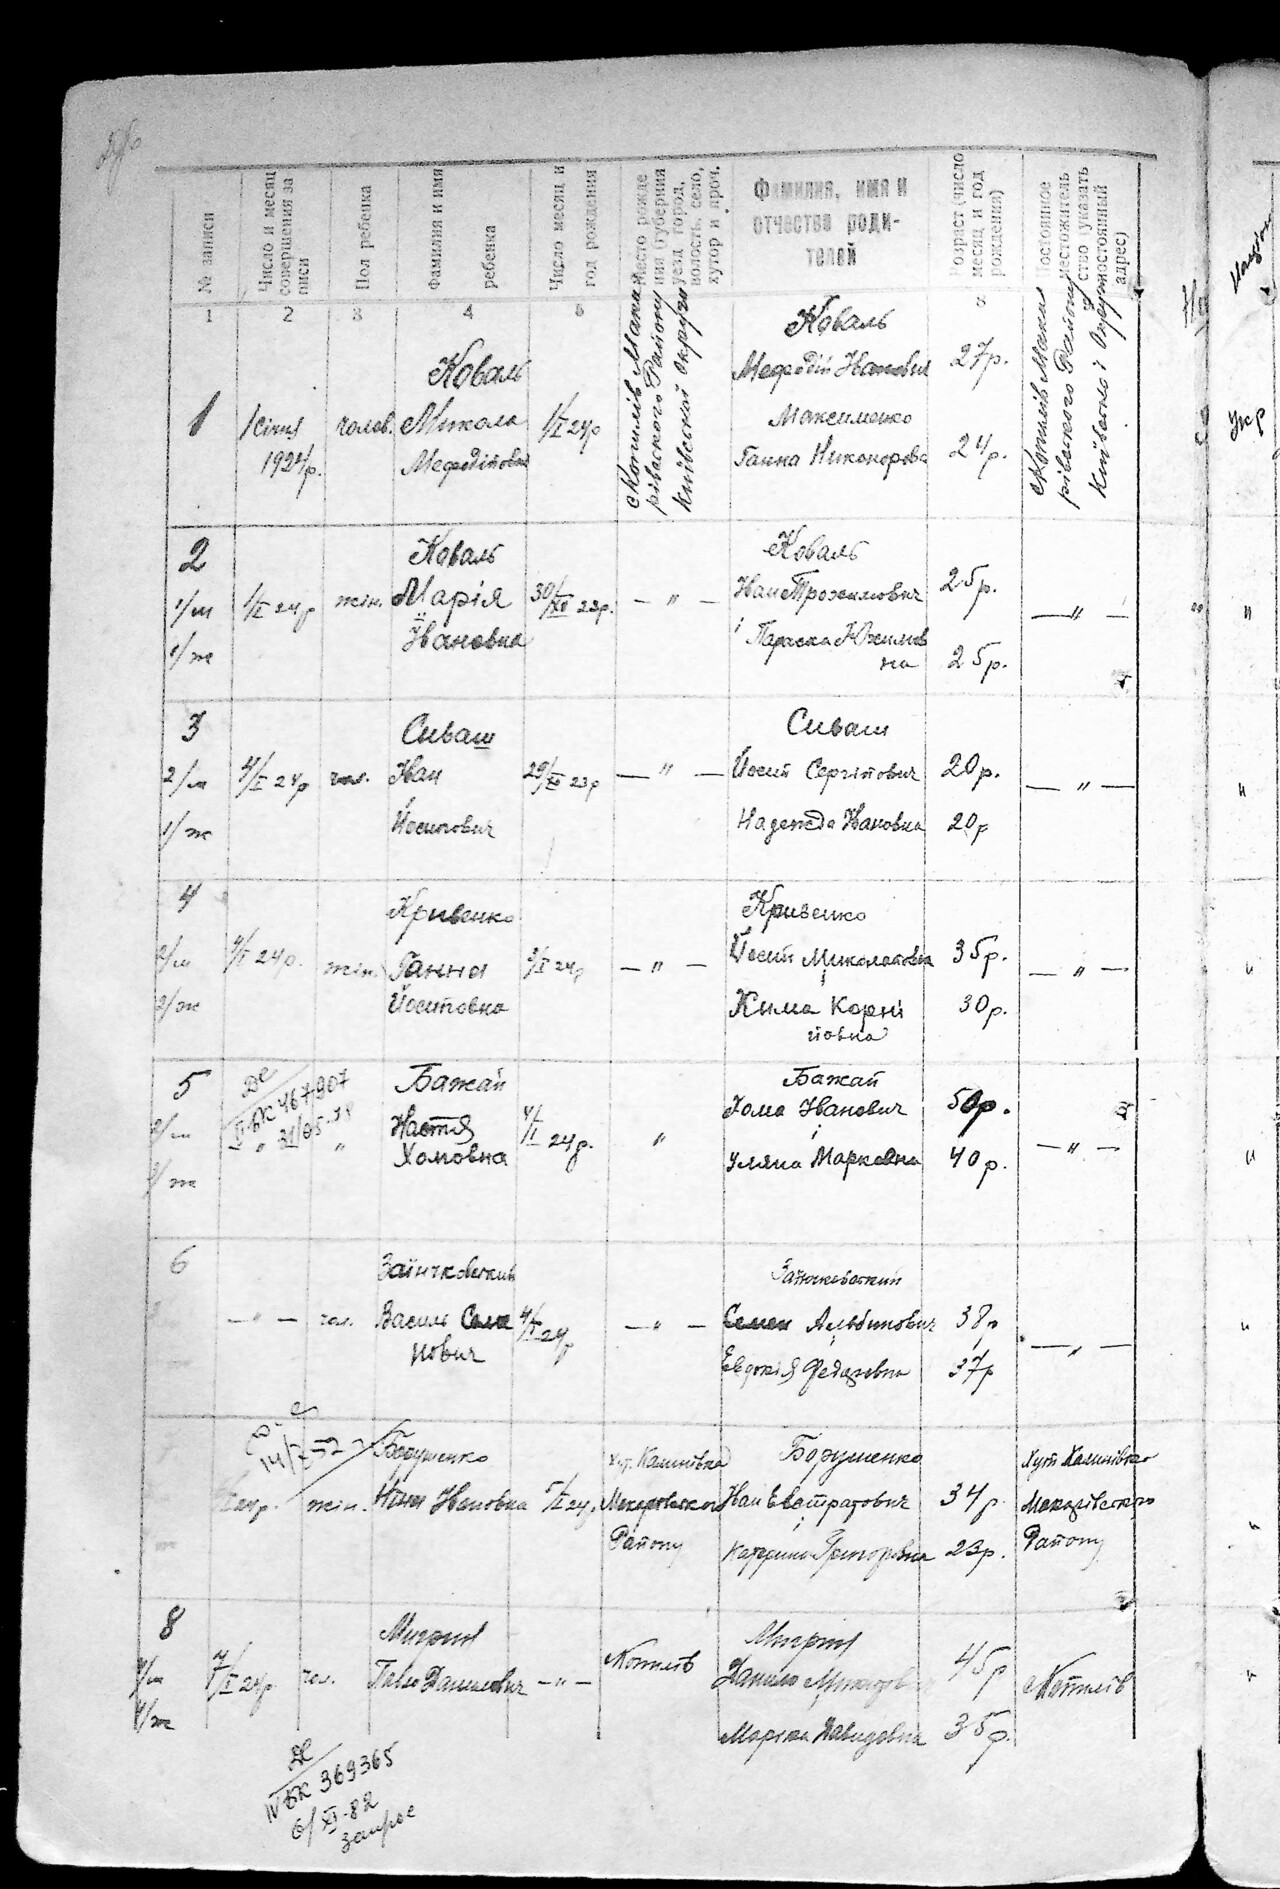 № записи
Число и месяц
совершения за
писи
Пол ребенка
Фамилия и имя
ребенка
Число месяц и
год рождения
Место рожде
ния (губерния
уезд город,
волость, село,
хутор и проч.
Фамилия, имя и
отчество роди-
телей
Возраст (число
месяц и год
рождения)
Постоянное
местожитель
ство (указать
адрес)
1
2
3
4
5
8
1
1 січня
1924р.
чолов.
Коваль
Микола
1/I 24р
Макарівського Району
Київської Округи
Коваль
Мефодій Іванович
27р.
Максименко
Ганна Никонорова
24р.
2
1/м
1/ж
1/I 24р
жін.
Коваль
Марія
Івановна
30/XII 23р.
— " —
Коваль
Іван Трохимович
25р.
і Параска Юхимов
на
25р.
— " —
"
3
2/м
1/ж
4/I 24р
чол.
Сиваш
Іван
Йосипович
29/XII 23р
— " —
Сиваш
Йосип Сергійович
20р.
Надежда Івановна
20р
— " —
"
4
2/м
2/ж
24р.
жін.
Кривенко
Ганна
Йосиповна
3/I 24р
— " —
Кривенко
Йосип Миколаєвич
35р.
Хима Корні
йовна
30р.
— " —
"
5
2/м
3/ж
467907
31/05-78
"
"
Бажай
Настя
Хомовна
4/I 24р.
"
Бажай
Хома Іванович
50р.
і
Уляна Марковна
40р.
— " —
"
6
— " —
чол.
Зайнчковский
Василь Семе
нович
4/I 24р
— " —
Семен Альбинович
38р
Евдокія
37р
— " —
"
14/
жін.
Борушенко
Івановна
5/I 24р
хут. Калинівка
Макаровського
Району
Борушенко
Іван Евстратович
34р.
і
Катерина Григоровна
23р.
Хут Калинівка
Макарівського
Району
"
8
4/м
4/ж
7/I 24р
чол.
Мигрин
Павло Данилович
— " —
Копилів
Мигрин
Данило
45р
Марія Давидовна
35р.
Копилів
"
IV БК 369365
6/XI-82
запрос